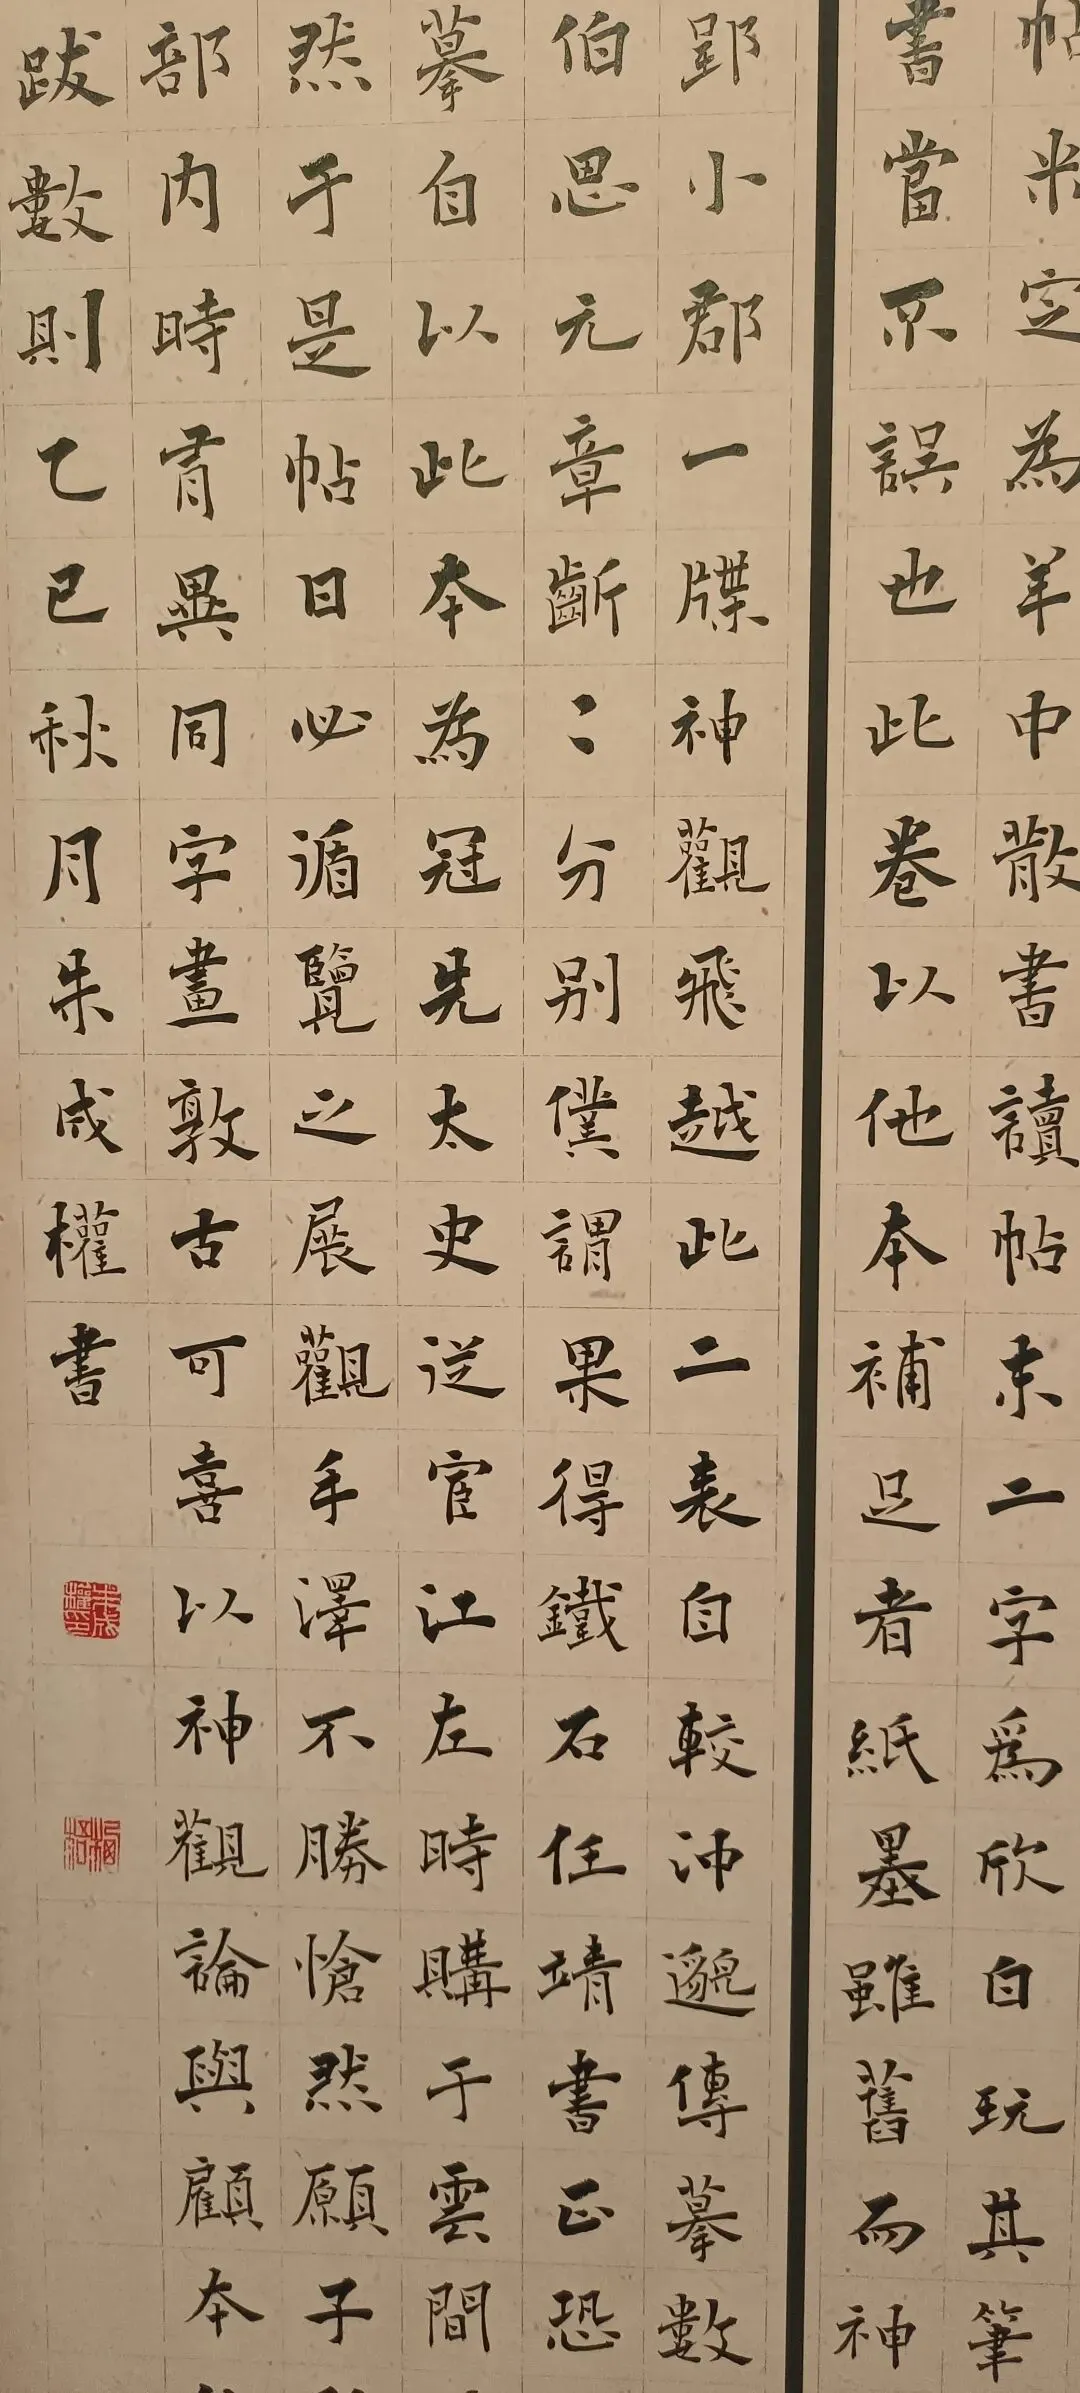 帖米定為羊中散書讀帖末二字爲欣白玩其筆
書當不誤也此卷以他本補足者紙墨雖舊而神
郢小郡一牒神觀飛越此二表自較沖邈傳摹數
伯思元章齗〻分別僕謂果得鐵石任靖書正恐
摹自以此本為冠先太史從宦江左時購于雲間
然于是帖日必循覽之展觀手澤不勝愴然願子
部內時有異同字畫敦古可喜以神觀論與顧本
跋數則乙巳秋月朱成權書